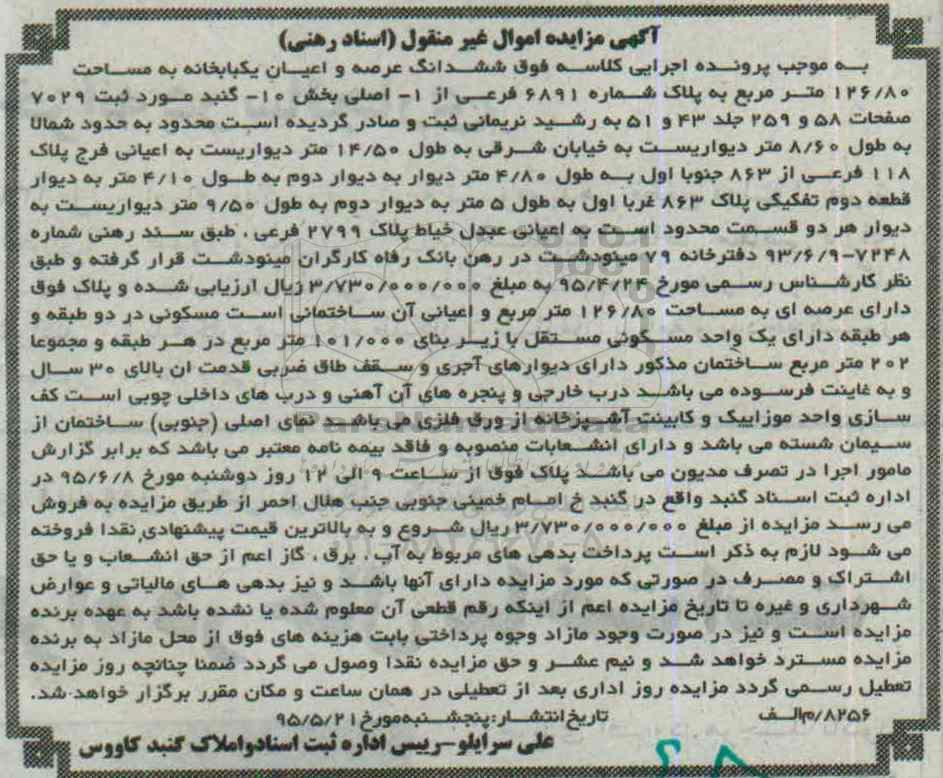 آگهی مزایده اموال غیر منقول (اسناد رهنی)
به موجب پرونده اجرایی کلاسه فوق ششدانگ عرصه و اعیان یکبابخانه به مساحت
۱۲۶/۸۰ متر مربع به پلاک شماره ۶۸۹۱ فرعی از ۱- اصلی بخش ۱۰- گنبد مورد ثبت ۷۰۲۹
صفحات ۵۸ و ۲۵۹ جلد ۴۳ و ۵۱ به رشید نریمانی ثبت و صادر گردیده است محدود به حدود شمالا
به طول ۸/۶۰ متر دیواریست به خیابان شرقی به طول ۱۴/۵۰ متر دیواریست به اعیانی فرج پلاک
۱۱۸ فرعی از ۸۶۳ جنوبا اول به طول ۴/۸۰ متر دیوار به دیوار دوم به طول ۴/۱۰ متر به دیوار
قطعه دوم تفکیکی پلاک ۸۶۳ غربا اول به طول ۵ متر به دیوار دوم به طول ۹/۵۰ متر دیواریست به
دیوار هر دو قسمت محدود است به اعیانی عبدل خیاط پلاک ۲۷۹۹ فرعی ، طبق سند رهنی شماره
۷۲۴۸-۹۳/۶/۹ دفترخانه ۷۹ مینودشت در رهن بانک رفاه کارگران مینودشت قرار گرفته و طبق
نظر کارشناس رسمی مورخ ۹۵/۴/۲۴ به مبلغ ۳/۷۳۰/۰۰۰/۰۰۰ ریال ارزیابی شده و پلاک فوق
دارای عرصه ای به مساحت ۱۲۶/۸۰ متر مربع و اعیانی آن ساختمانی است مسکونی در دو طبقه و
هر طبقه دارای یک واحد مسکونی مستقل با زیر بنای ۱۰۱/۰۰۰ متر مربع در هر طبقه و مجموعا
۲۰۲ متر مربع ساختمان مذکور دارای دیوارهای آجری و سقف طاق ضربی قدمت ان بالای ۳۰ سال
و به غاینت فرسوده می باشد درب خارجی و پنجره های آن آهنی و درب های داخلی چوبی است کف
سازی واحد موزاییک و کابینت آشپزخانه از ورق فلزی می باشد نمای اصلی (جنوبی) ساختمان از
سیمان شسته می باشد و دارای انشعابات منصوبه و فاقد بیمه نامه معتبر می باشد که برابر گزارش
مامور اجرا در تصرف مدیون می باشد پلاک فوق از ساعت ۹ الی ۱۲ روز دوشنبه مورخ ۹۵/۶/۸ در
اداره ثبت اسناد گنبد واقع در گنبد خ امام خمینی جنوبی جنب هلال احمر از طریق مزایده به فروش
می رسد مزایده از مبلغ ۳/۷۳۰/۰۰۰/۰۰۰ ریال شروع و به بالاترین قیمت پیشنهادی نقدا فروخته
می شود لازم به ذکر است پرداخت بدهی های مربوط به آب ، برق ، گاز اعم از حق انشعاب و یا حق
اشتراک و مصرف در صورتی که مورد مزایده دارای آنها باشد و نیز بدهی های مالیاتی و عوارض
شهرداری و غیره تا تاریخ مزایده اعم از اینکه رقم قطعی آن معلوم شده یا نشده باشد به عهده برنده
مزایده است و نیز در صورت وجود مازاد وجوه پرداختی بابت هزینه های فوق از محل مازاد به برنده
مزایده مسترد خواهد شد و نیم عشر و حق مزایده نقدا وصول می گردد ضمنا چنانچه روز مزایده
تعطیل رسمی گردد مزایده روز اداری بعد از تعطیلی در همان ساعت و مکان مقرر برگزار خواهد شد.
۸۲۵۶/م/الف تاریخ انتشار:پنجشنبه مورخ ۹۵/۵/۲۱
علی سرایلو-رییس اداره ثبت اسناد و املاک گنبد کاووس